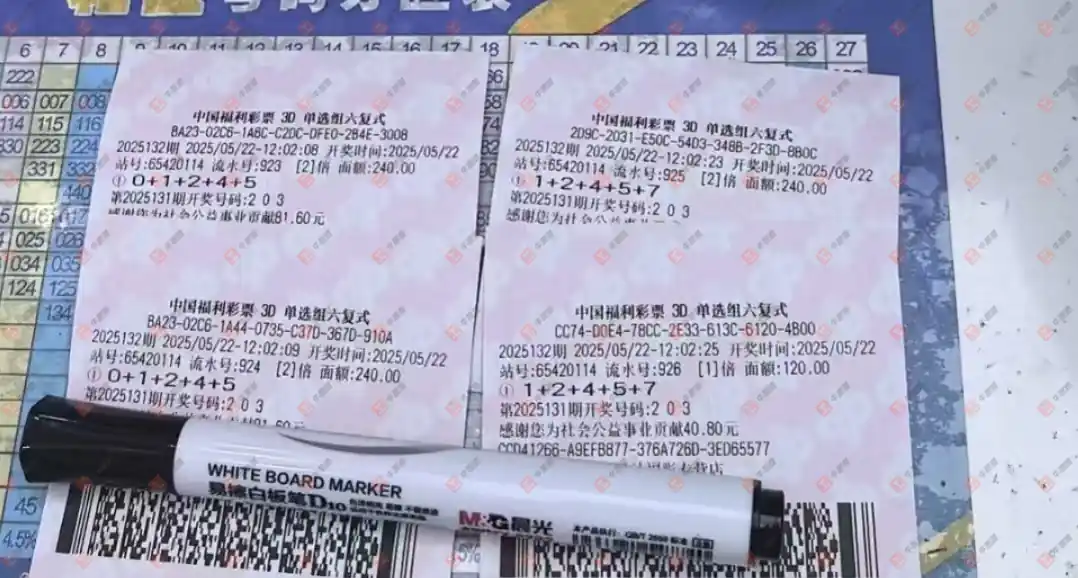 6 7 8 9 10 11 12 13 14 15 16 17 18 19 20 21 22 23 24 25 26 27
222
006 007 008
114 115 116
330 223 224
331 332
440
016 017
025 026
034 035
124 125
134
45
4.5%
中国福利彩票 3D 单选组六复式
2025132期 2025/05/22-12:02:08 开奖时间:2025/05/22
站号:65420114 流水号:923 [2]倍 面额:240.00
① 0+1+2+4+5
第2025131期开奖号码:2 0 3
感谢您为社会公益事业贡献81.60元
中国福利彩票 3D 单选组六复式
2D9C-2031-E50C-54D3-348B-2F3D-8B0C
2025132期 2025/05/22-12:02:23 开奖时间:2025/05/22
站号:65420114 流水号:925 [2]倍 面额:240.00
① 1+2+4+5+7
第2025131期开奖号码:2 0 3
感谢您为社会公益事业贡献
中国福利彩票 3D 单选组六复式
BA23-02C6-1A44-0735-C37D-367D-910A
2025132期 2025/05/22-12:02:09 开奖时间:2025/05/22
站号:65420114 流水号:924 [2]倍 面额:240.00
① 0+1+2+4+5
第2025131期开奖号码:2 0 3
中国福利彩票 3D 单选组六复式
CC74-D0E4-78CC-2E33-613C-6120-4B00
2025132期 2025/05/22-12:02:25 开奖时间:2025/05/22
站号:65420114 流水号:926 [1]倍 面额:120.00
① 1+2+4+5+7
第2025131期开奖号码:2 0 3
感谢您为社会公益事业贡献40.80元
CCD41266-A9EFB877-376A726D-3ED65577
WHITE BOARD MARKER
易擦白板笔D10
M&G晨光